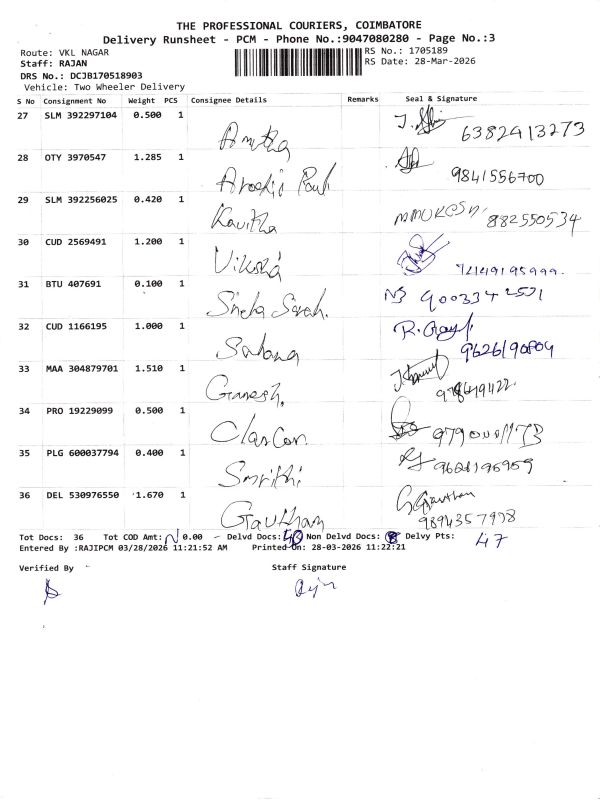 THE PROFESSIONAL COURIERS, COIMBATORE
Delivery Runsheet - PCM - Phone No.:9047080280 - Page No.:3
Route: VKL NAGAR RS No.: 1705189
Staff: RAJAN RS Date: 28-Mar-2026
DRS No.: DCJB170518903
Vehicle: Two Wheeler Delivery
S No Consignment No Weight PCS Consignee Details Remarks Seal & Signature
27 SLM 392297104 0.500 1
Amutha 6382413273
28 OTY 3970547 1.285 1
Arockia Paul 9841556700
29 SLM 392256025 0.420 1
Kavitha 882550534
30 CUD 2569491 1.200 1
31 BTU 407691 0.100 1
Sneha Sarah.
32 CUD 1166195 1.000 1
Sadana 9626190804
33 MAA 304879701 1.510 1
Ganesh.
34 PRO 19229099 0.500 1
35 PLG 600037794 0.400 1
Smrithi
36 DEL 530976550 1.670 1
Gautham 9894357998
Tot Docs: 36 Tot COD Amt: 0.00 Delvd Docs: Non Delvd Docs: Delvy Pts: 47
Entered By :RAJIPCM 03/28/2026 11:21:52 AM Printed On: 28-03-2026 11:22:21
Verified By Staff Signature